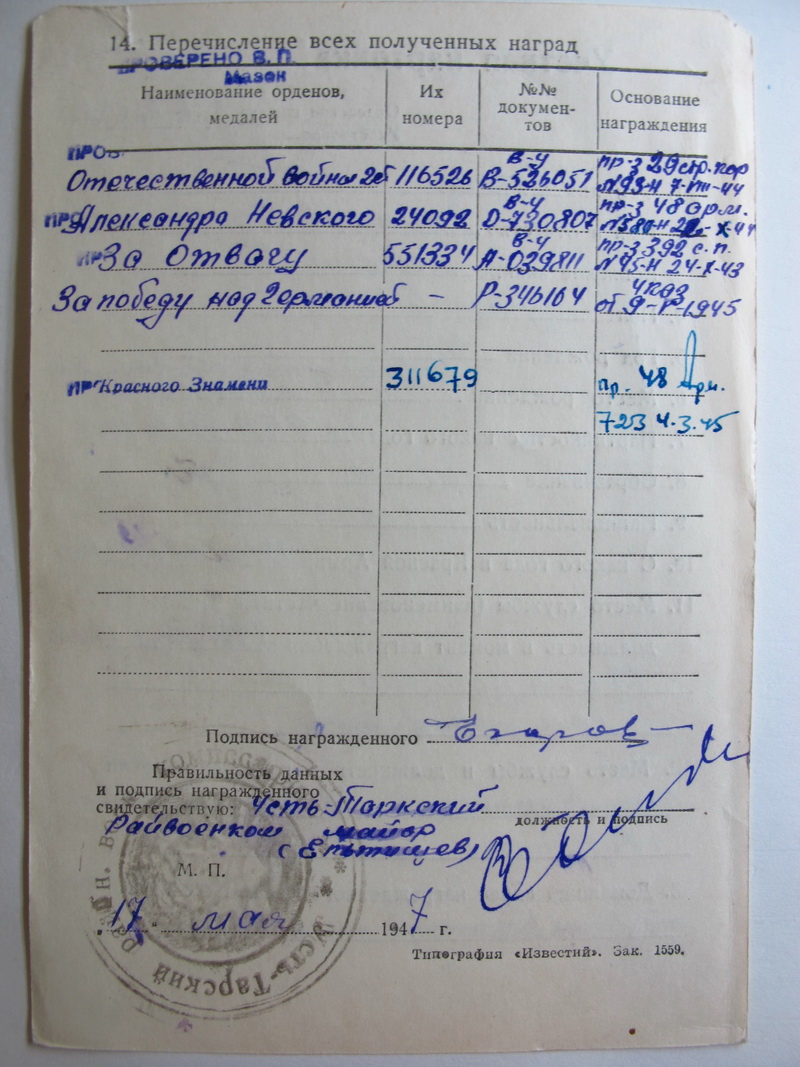 14. Перечисление всех полученных наград
ПРОВЕРЕНО В. П.
Мазок
Наименование орденов, медалей
Их номера
№№ документов
Основание награждения
ПРОВ
Отечественной войны 2 ст 116526 в-у В-526051 пр-з 29 стр. кор №93-н 7-III-44
ПРО Александра Невского 24092 в-у D-730807 пр-з 48 арм. №580-н X-44
ПР За Отвагу 551334 в-у А-039811 пр-з 392 с.п. №45-н 24-X-43
За победу над Германией – Р-346164 указ от 9-V-1945
ПР Красного Знамени 311679 пр. 48 Арм.
723 4.3.45
Подпись награжденного Егоров
Правильность данных
и подпись награжденного
свидетельствую: Усть-Таркский
должность и подпись
Райвоенком майор
М. П.
17 мая 1947 г.
Типография «Известий». Зак. 1559.
Усть-Тарский Район. В